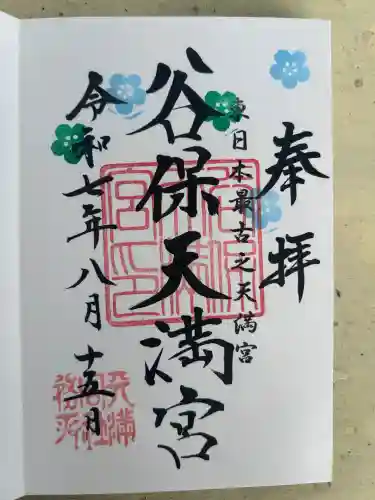 奉拝
東日本最古之天満宮
谷保天満宮
令和七年八月十五日